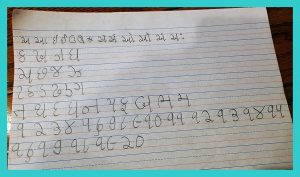 અ આ ઇ ઈ ઉ ઊ એ ઐ ઓ ઔ અં અઃ
ક ખ ગ ઘ
ચ છ જ ઝ
ટ ઠ ડ ઢ ણ
ત થ દ ધ ન પ ફ બ ભ મ
૧ ૨ ૩ ૪ ૫ ૬ ૭ ૮ ૯ ૧૦ ૧૧ ૧૨ ૧૩ ૧૪ ૧૫
૧૬ ૧૭ ૧૮ ૧૯ ૨૦